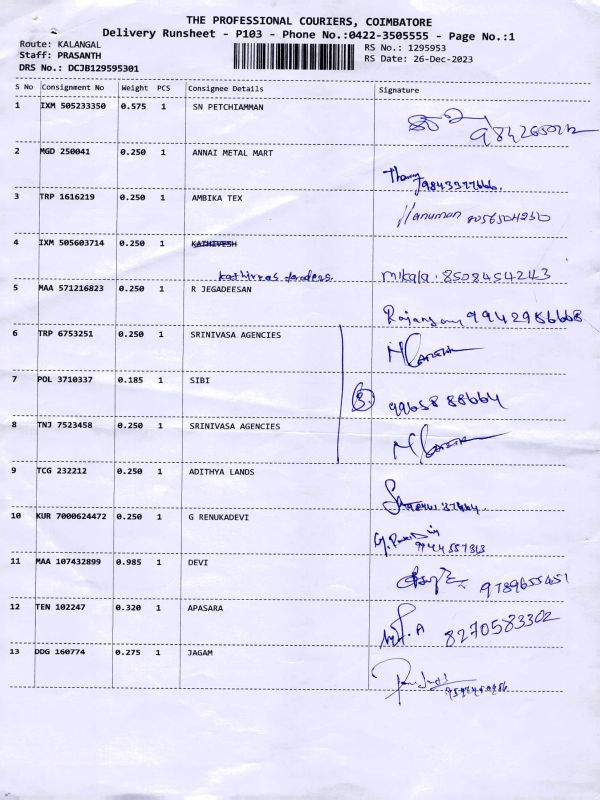 THE PROFESSIONAL COURIERS, COIMBATORE
Delivery Runsheet - P103 - Phone No.:0422-3505555 - Page No.:1
Route: KALANGAL RS No.: 1295953
Staff: PRASANTH RS Date: 26-Dec-2023
DRS No.: DCJB129595301
S No Consignment No Weight PCS Consignee Details Signature
1 IXM 505233350 0.575 1 SN PETCHIAMMAN
2 MGD 250041 0.250 1 ANNAI METAL MART
3 TRP 1616219 0.250 1 AMBIKA TEX
Hanuman 8056504250
4 IXM 505603714 0.250 1 KATHIVESH
mikala: 8508454243
5 MAA 571216823 0.250 1 R JEGADEESAN
9942986668
6 TRP 6753251 0.250 1 SRINIVASA AGENCIES
7 POL 3710337 0.185 1 SIBI
3. 99658 88664
8 TNJ 7523458 0.250 1 SRINIVASA AGENCIES
9 TCG 232212 0.250 1 ADITHYA LANDS
10 KUR 7000624472 0.250 1 G RENUKADEVI
11 MAA 107432899 0.985 1 DEVI
9789655451
12 TEN 102247 0.320 1 APASARA
8270583302
13 DDG 160774 0.275 1 JAGAM